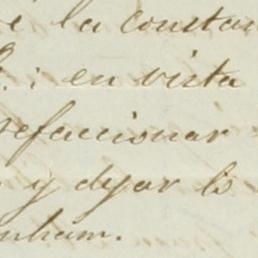 é la constan
: en vista
refaccionar
y dejar lo
nham.